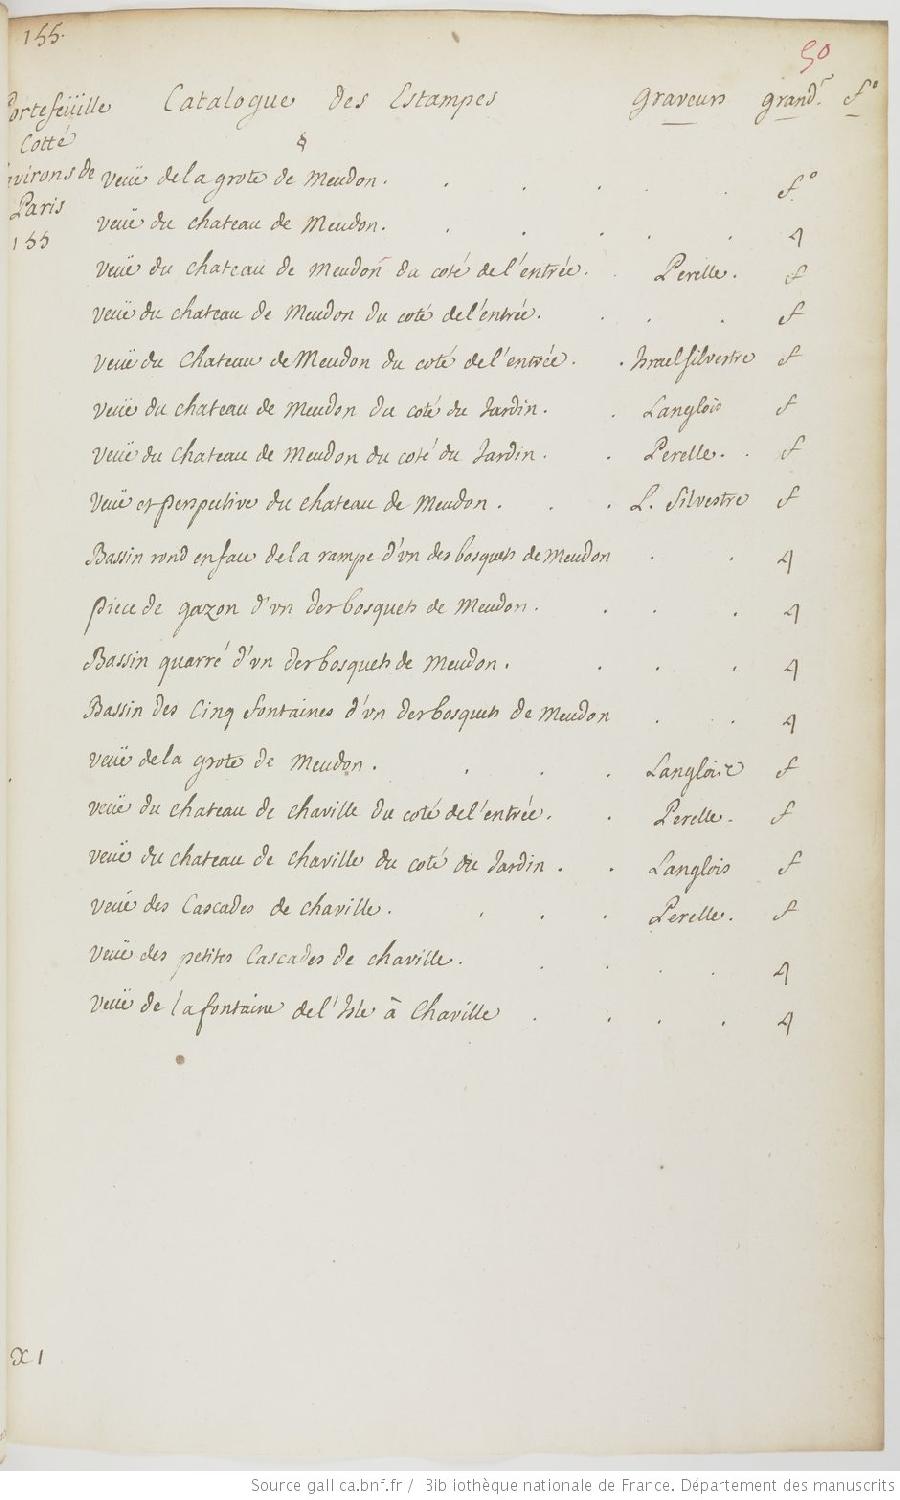 155.
50
Portefeüille Catalogue des Estampes graveurs grandr. fo
Cotté
Environs de
Paris
155
veüe de la grote de Meudon. fo
veüe du chateau de Meudon. 4
veüe du chateau de Meudon du coté de l'entrée. Perelle. f
veüe du chateau de Meudon du coté de l'entrée. f
veüe du Chateau de Meudon du coté de l'entrée. Israel silvestre f
veüe du chateau de Meudon du coté du Jardin. Langlois f
veüe du chateau de Meudon du coté du Jardin. Perelle. f
veüe et perspective du chateau de Meudon. I. Silvestre f
Bassin rond en face de la rampe d'vn des bosquets de Meudon 4
piece de gazon d'vn des bosquets de Meudon. 4
Bassin quarré d'vn des bosquets de Meudon. 4
Bassin des Cinq fontaines d'vn des bosquets de Meudon 4
veüe de la grote de Meudon. Langlois f
veüe du chateau de chaville du coté de l'entrée. Perelle. f
veüe du chateau de chaville du coté du Jardin. Langlois f
veüe des Cascades de chaville. Perelle. f
veüe des petites Cascades de chaville. 4
veüe de la fontaine de l'Isle à Chaville 4
X I
Source gallica.bnf.fr / Bibliothèque nationale de France. Département des manuscrits